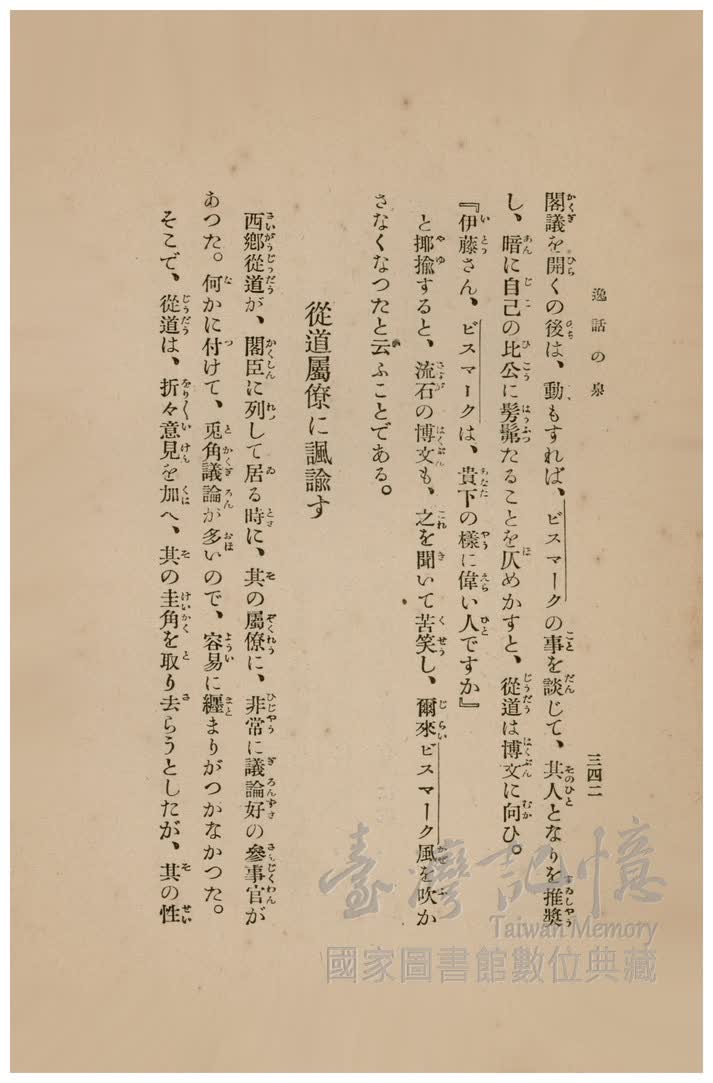 逸話の泉
三四二
閣議を開くの後は、動もすれば、ビスマークの事を談じて、其人となりを推奬
し、暗に自己の比公に髣髴たることを仄めかすと、從道は博文に向ひ。
『伊藤さん、ビスマークは、貴下の樣に偉い人ですか』
と揶揄すると、流石の博文も、之を聞いて苦笑し、爾來ビスマーク風を吹か
さなくなつたと云ふことである。
從道屬僚に諷諭す
西鄕從道が、閣臣に列して居る時に、其の屬僚に、非常に議論好の參事官が
あつた。何かに付けて、兎角議論が多いので、容易に纒まりがつかなかつた。
そこで、從道は、折々意見を加へ、其の圭角を取り去らうとしたが、其の性
臺灣記憶
Taiwan Memory
國家圖書館數位典藏